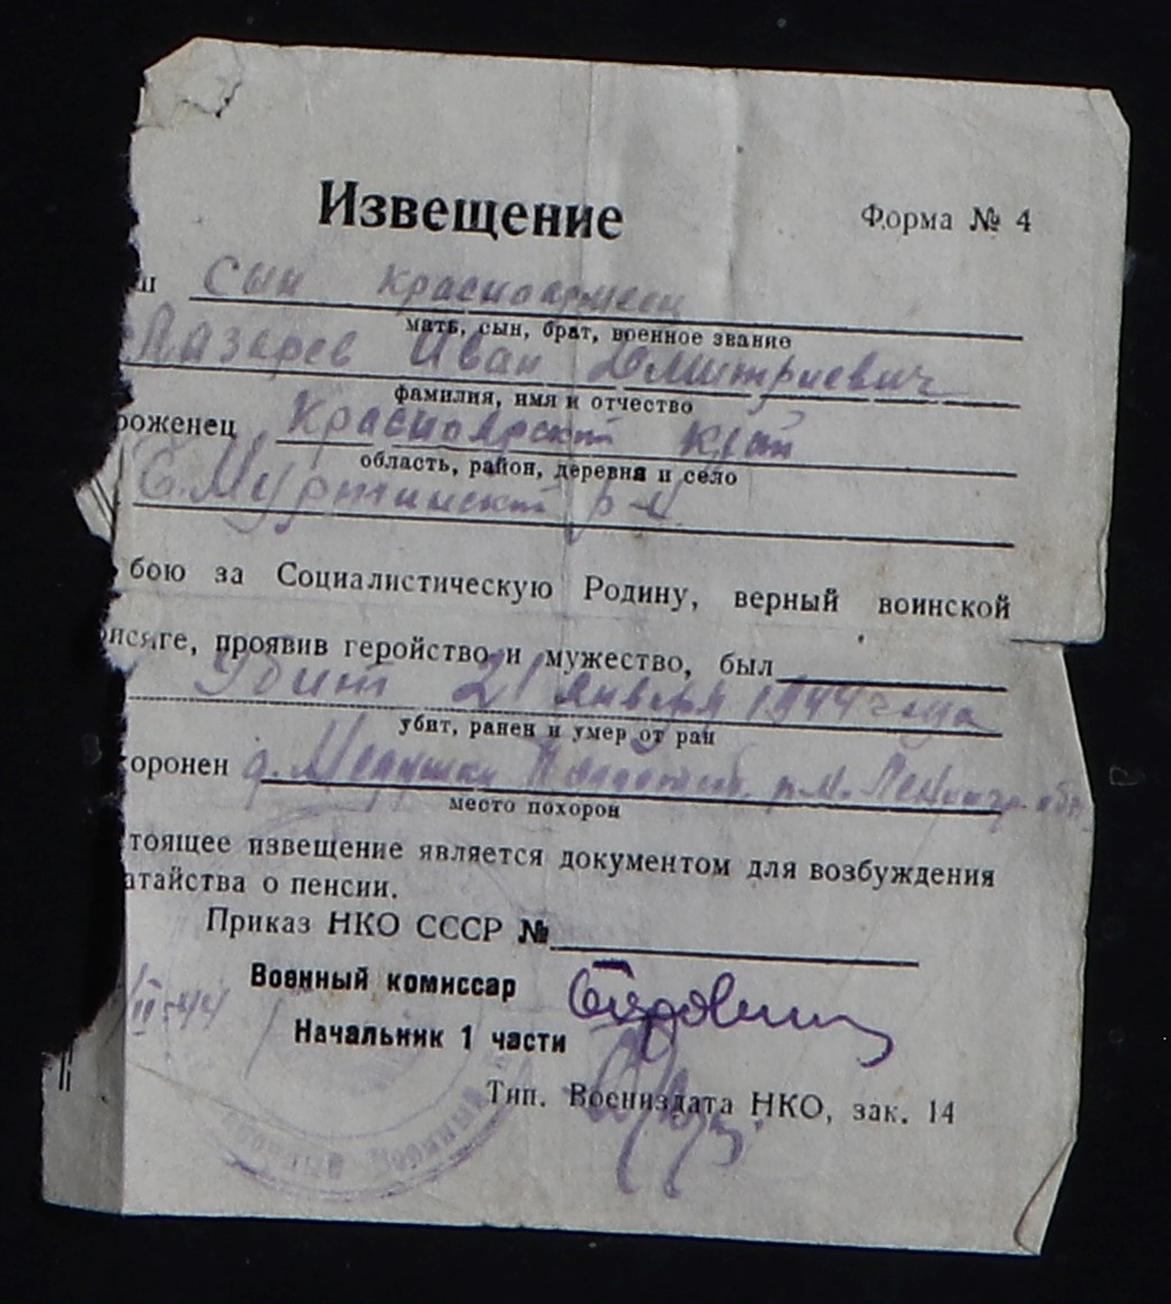 Извещение
Форма № 4
ш сын красноармеец
мать, сын, брат, военное звание
Лазарев Иван Дмитриевич
фамилия, имя и отчество
роженец Красноярский край
область, район, деревня и село
Б.Муртинский р-н
бою за Социалистическую Родину, верный воинской
рисяге, проявив геройство и мужество, был
Убит 21 января 1944 года
убит, ранен и умер от ран
оронен д.
место похорон
тоящее извещение является документом для возбуждения
атайства о пенсии.
Приказ НКО СССР №
Военный комиссар
II-44
Начальник 1 части
Тип. Воениздата НКО, зак. 14